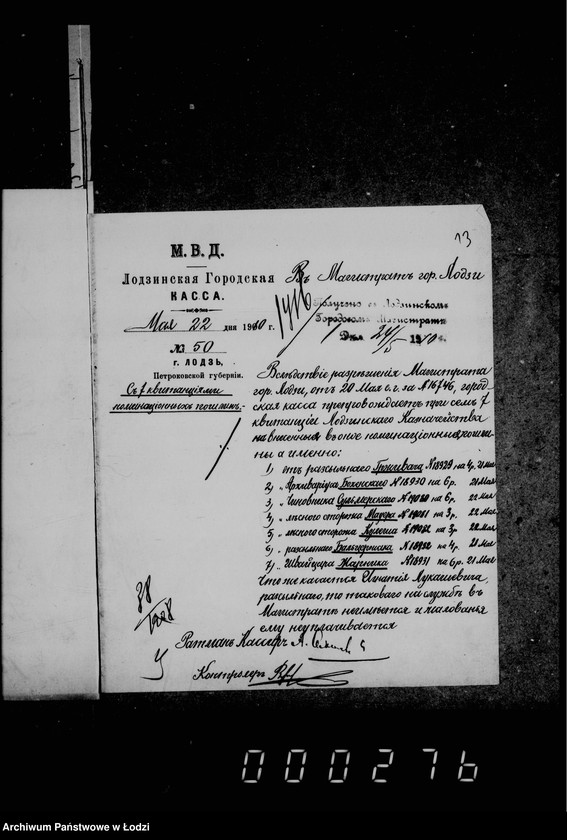 13
М. В. Д.
Лодзинская Городская
КАССА.
Мая 22 дня 1910 г.
№ 50
г. ЛОДЗЬ,
Петроковской губерніи.
Съ 7 квитанціями
номинаціонныхъ пошлинъ.
Въ Магистратъ гор. Лодзи
1916
Получено въ Лодзинскомъ
Городскомъ Магистратѣ
Дня 24/5 1910 г.
Вслѣдствіе разрѣшенія Магистрата
гор. Лодзи, отъ 20 Мая с.г. за № 16746, город-
ская касса препровождаетъ при семъ 7
квитанцій Лодзинскаго Казначейства
на внесенныя въ оное номинаціонныя пошли-
ны а именно:
1) отъ разсыльнаго № 18929 на 4 р. 21 Мая
2) „ Архиваріуса № 18930 на 6 р. 21 Мая
3) „ Чиновника № 19050 на 6 р. 22 Мая
4) „ лѣсного сторожа Мазура № 19051 на 3 р. 22 Мая
5) „ лѣсного сторожа Кулеша № 19052 на 3 р. 22 Мая
6) „ разсыльнаго № 18932 на 4 р. 21 Мая
7) „ Швайцара Жарника № 18931 на 6 р. 21 Мая
Что же касается Игнатія Лукашевича,
разсыльнаго, то таковаго на службѣ въ
Магистратѣ неимѣется и жалованья
ему неуплачивается
38
1908
Ратманъ Кассиръ А.
Контролеръ
000276
Archiwum Państwowe w Łodzi